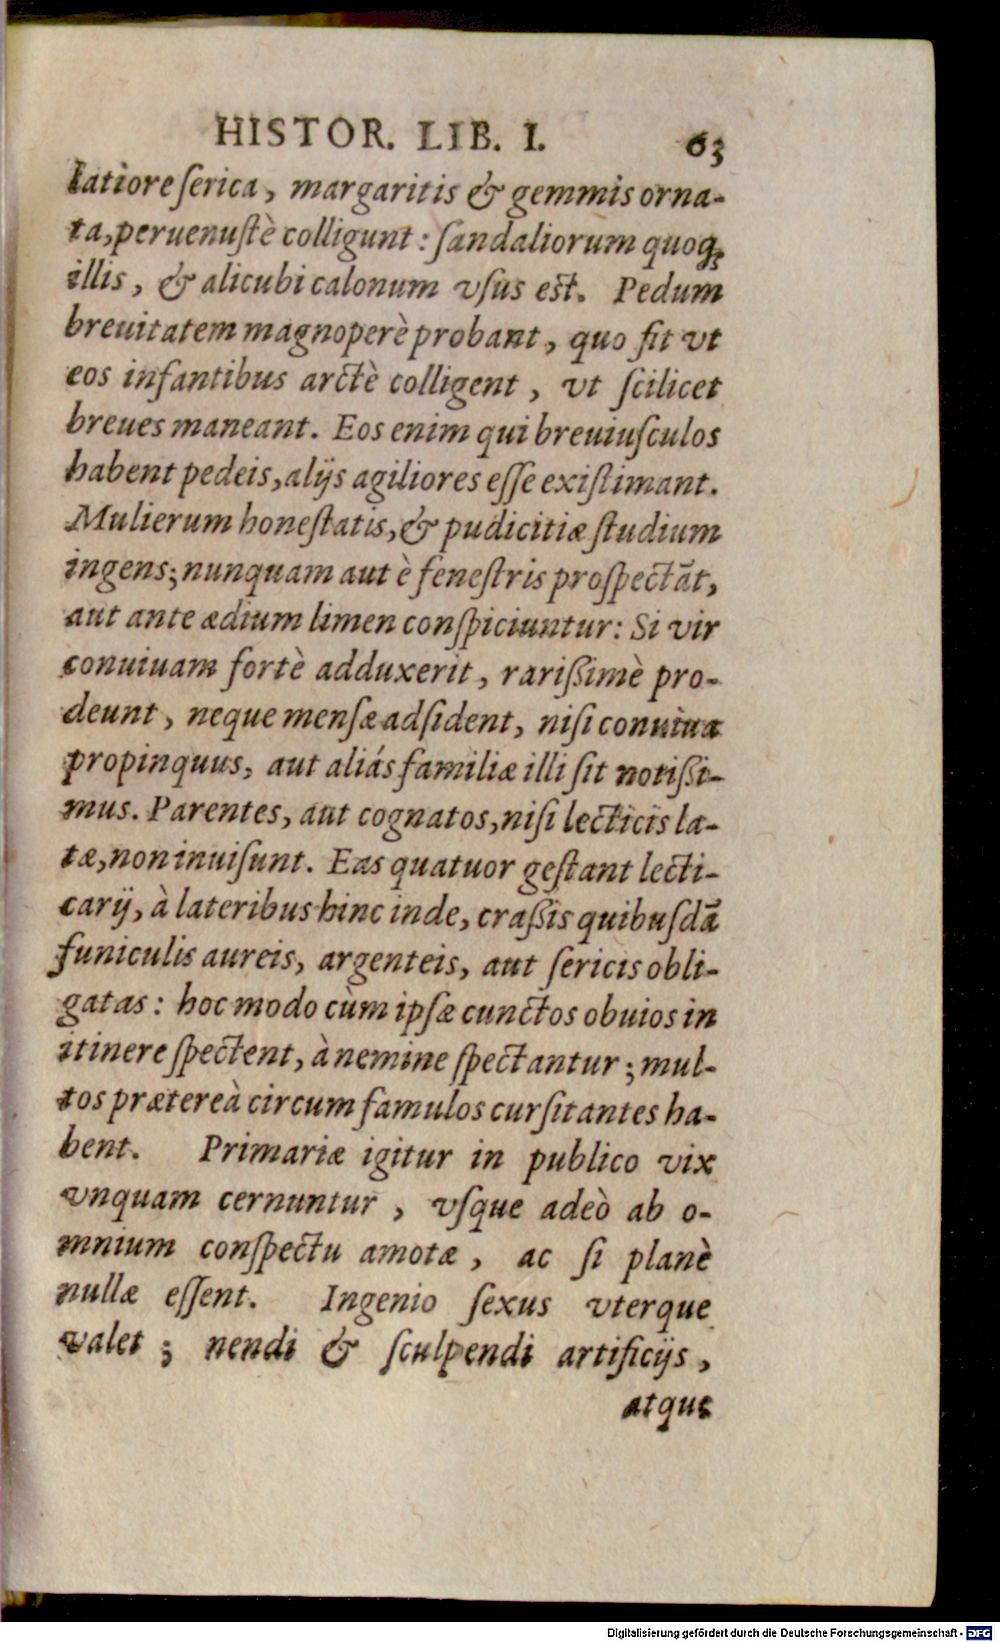 HISTOR. LIB. I. 63
latiore ſerica, margaritis & gemmis orna-
ta, peruenuſtè colligunt: ſandaliorum quoq;
illis, & alicubi calonum vſus eſt. Pedum
breuitatem magnoperè probant, quo fit vt
eos infantibus arctè colligent, vt ſcilicet
breues maneant. Eos enim qui breuiuſculos
habent pedeis, alijs agiliores eſſe exiſtimant.
Mulierum honeſtatis, & pudicitiæ ſtudium
ingens; nunquam aut è feneſtris proſpectāt,
aut ante ædium limen conſpiciuntur: Si vir
conuiuam fortè adduxerit, rarißimè pro-
deunt, neque menſæ adſident, niſi conuiua
propinquus, aut aliás familiæ illi ſit notißi-
mus. Parentes, aut cognatos, niſi lecticis la-
tæ, non inuiſunt. Eas quatuor geſtant lecti-
carij, à lateribus hinc inde, craßis quibuſdā
funiculis aureis, argenteis, aut ſericis obli-
gatas: hoc modo cùm ipſæ cunctos obuios in
itinere ſpectent, à nemine ſpectantur; mul-
tos prætereà circum famulos curſitantes ha-
bent. Primariæ igitur in publico vix
vnquam cernuntur, vſque adeò ab o-
mnium conſpectu amotæ, ac ſi planè
nullæ eſſent. Ingenio ſexus vterque
valet; nendi & ſculpendi artificijs,
atque
Digitalisierung gefördert durch die Deutsche Forschungsgemeinschaft - DFG